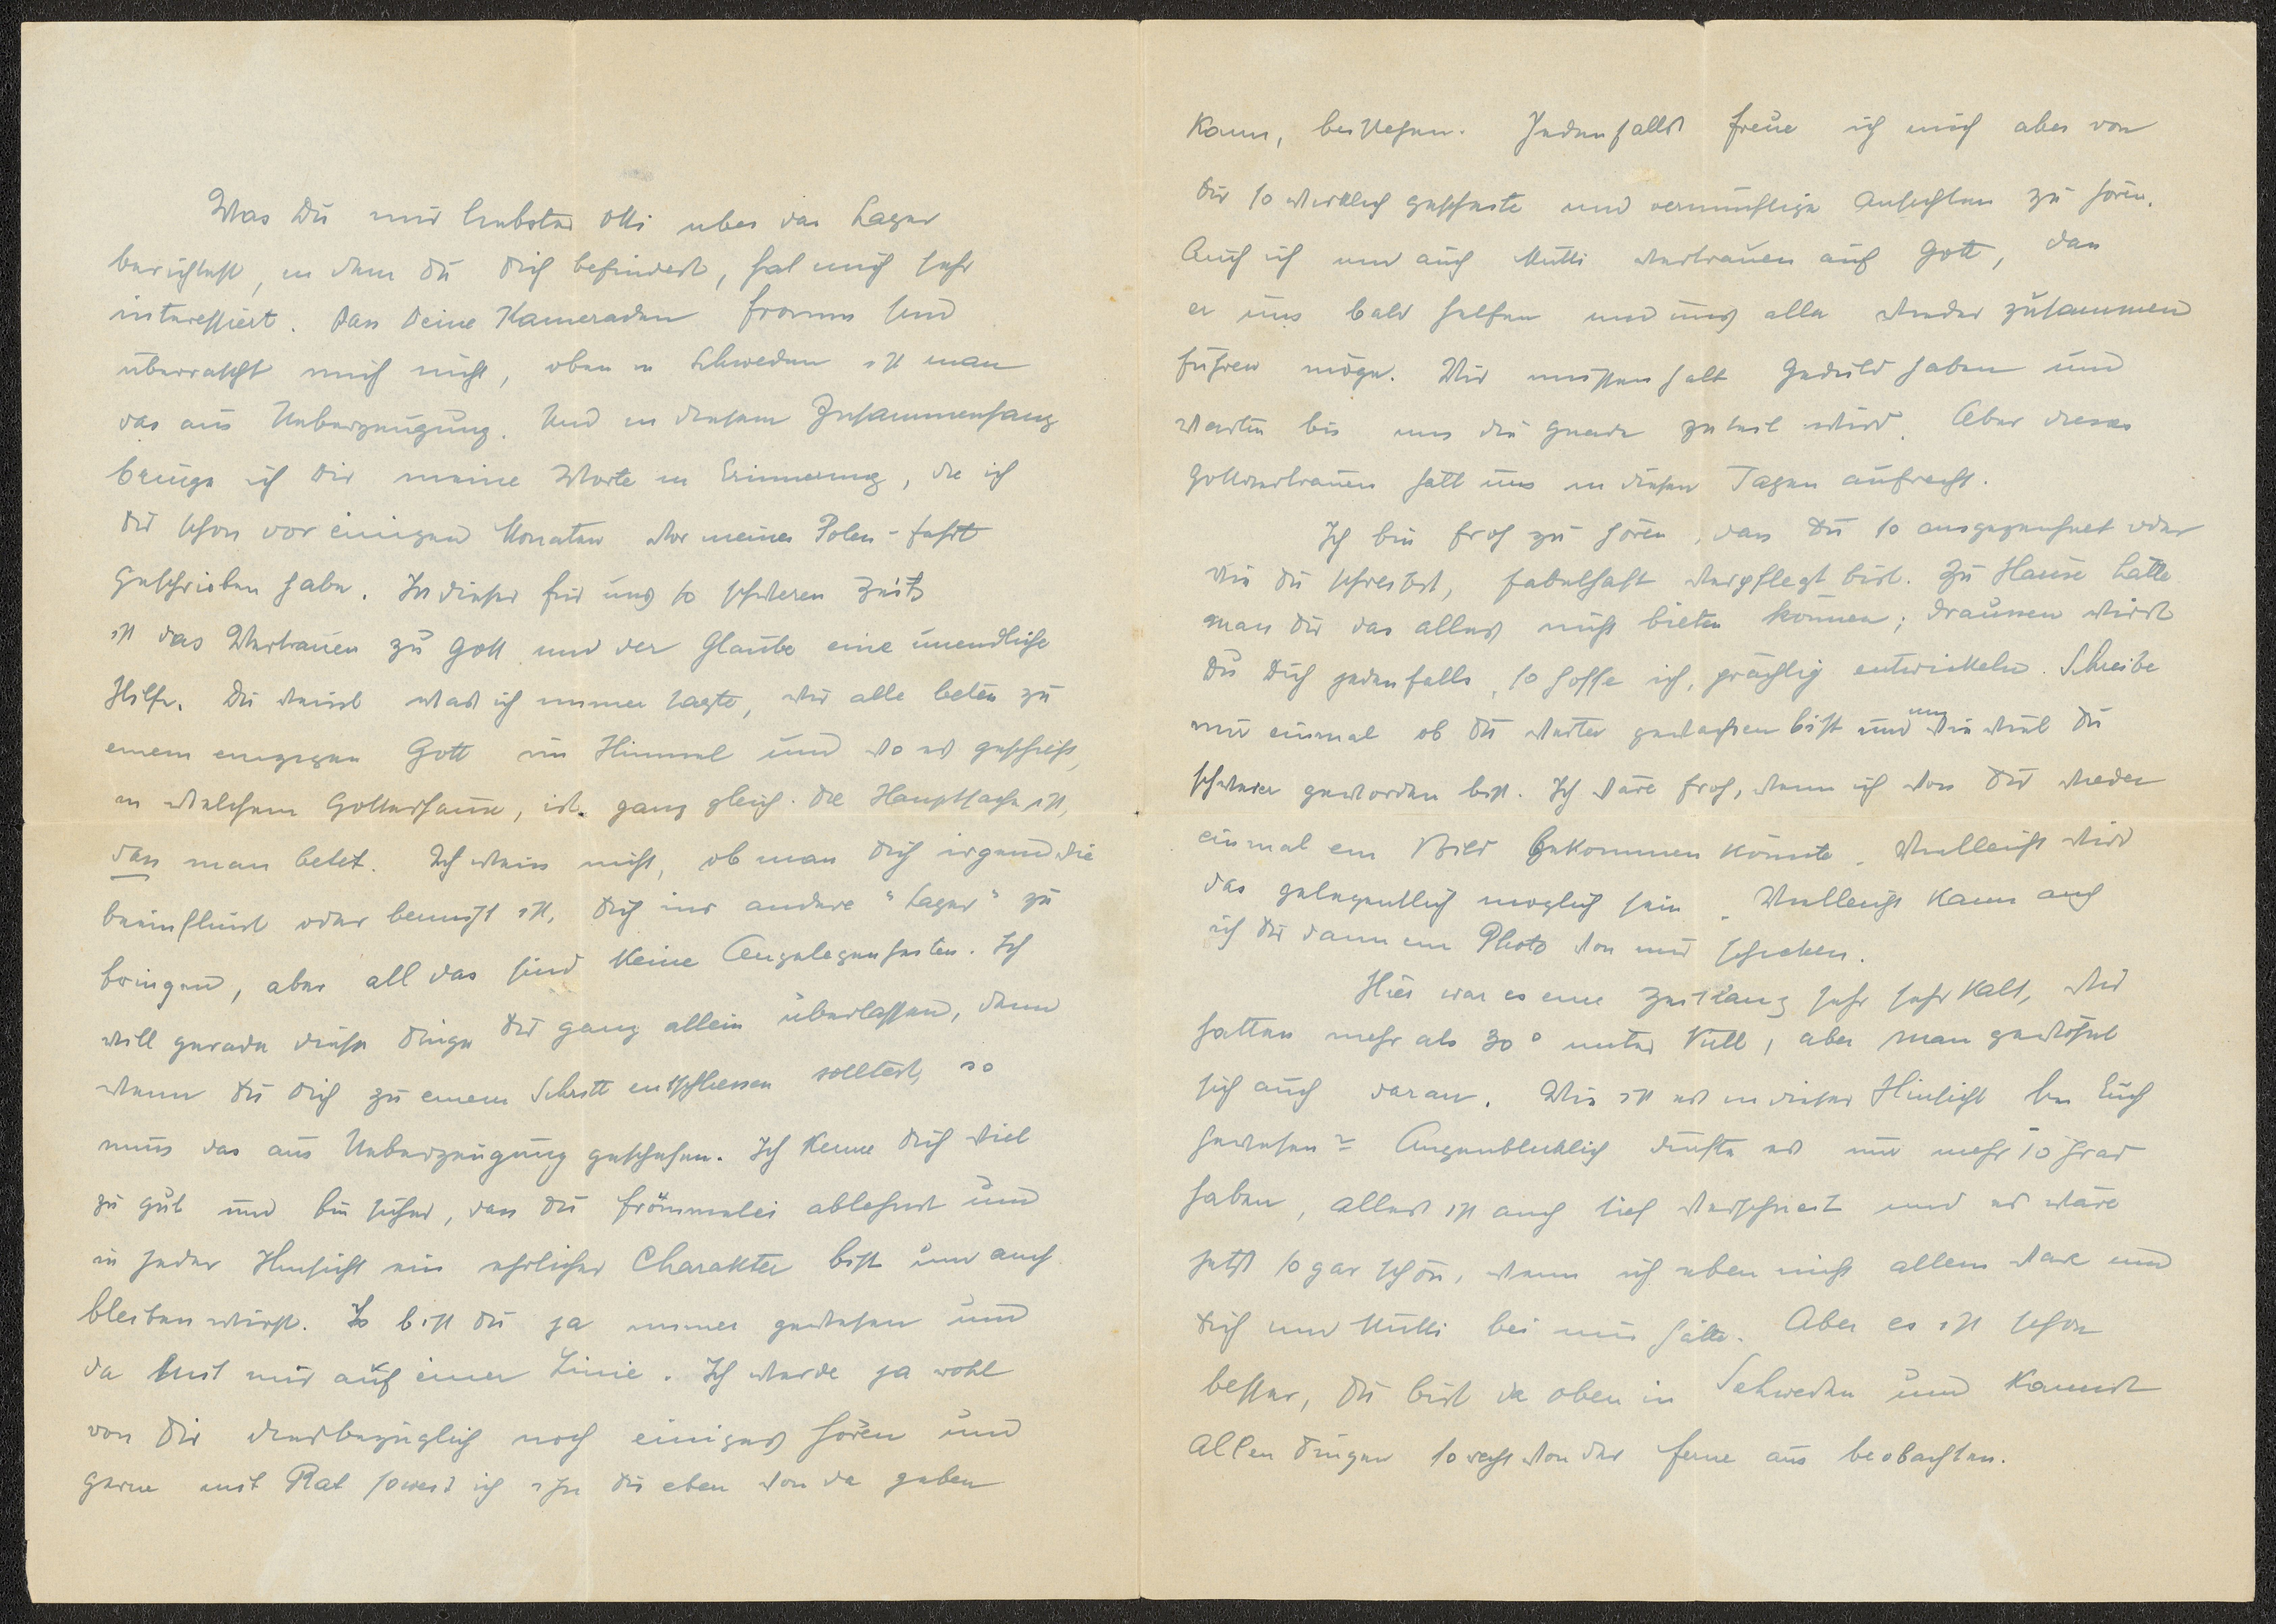 Was Du mir liebster Otti über das Lager
berichtest, in dem Du Dich befindest, hat mich sehr
interessiert. Dass Deine Kameraden fromm sind
überrascht mich nicht, oben in Schweden ist man
das aus Ueberzeugung. Und in diesem Zusammenhang
bringe ich Dir meine Worte in Erinnerung, die ich
Dir schon vor einigen Monaten vor meiner Polen-fahrt
geschrieben habe. In dieser für uns so schweren Zeit
ist das Vertrauen zu Gott und der Glaube eine unendliche
Hilfe. Du weisst was ich immer sagte, wir alle beten zu
einem einzigen Gott im Himmel und wo es geschieht,
in welchem Gotteshause, ist ganz gleich. Die Hauptsache ist,
dass man betet. Ich weiss nicht, ob man Dich irgendwie
beeinflusst oder bemüht ist, Dich ins andere "Lager" zu
bringen, aber all das sind keine Angelegenheiten. Ich
will gerade diese Dinge Dir ganz allein überlassen, denn
wenn Du Dich zu einem Schritt entschliessen solltest, so
muss das aus Ueberzeugung geschehen. Ich kenne Dich viel
zu gut und bin sicher, dass Du Frömmelei ablehnst und
in jeder Hinsicht ein ehrlicher Charakter bist und auch
bleiben wirst. So bist Du ja immer gewesen und
da bist mir auf einer Linie. Ich werde ja wohl
von Dir diesbezüglich noch einiges hören und
gerne mit Rat soweit ich ihn Dir eben von da geben
kann, beistehen. Jedenfalls freue ich mich aber von
Dir so wirklich gescheite und vernünftige Ansichten zu hören.
Auch ich und auch Mutti vertrauen auf Gott, dass
er uns bald helfen und uns alle wieder zusammen
führen möge. Wir müssen halt Geduld haben und
warten bis uns die Gnade zuteil wird. Aber dieses
Gottvertrauen hält uns in diesen Tagen aufrecht.
Ich bin froh zu hören, dass Du so ausgezeichnet oder
wie Du schreibst, fabelhaft verpflegt bist. Zu Hause hätte
man Dir das alles nicht bieten können; draussen wirst
Du Dich jedenfalls, so hoffe ich, prächtig entwickeln. Schreibe
mir einmal ob Du weiter gewachsen bist und um wie viel Du
schwerer geworden bist. Ich wäre froh, wenn ich von Dir wieder
einmal ein Bild bekommen könnte. Vielleicht wird
das gelegentlich möglich sein. Vielleicht kann auch
ich Dir dann ein Photo von mir schicken.
Hier war es eine Zeitlang sehr sehr kalt, wir
hatten mehr als 30° unter Null, aber man gewöhnt
sich auch daran. Wie ist es in dieser Hinsicht bei Euch
gewesen? Augenblicklich dürfte es nur mehr 10 Grad
haben, alles ist auch tief verschneit und es wäre
jetzt sogar schön, wenn ich eben nicht allein wäre und
Dich und Mutti bei mir hätte. Aber es ist schon
besser, Du bist da oben in Schweden und kannst
allen Dingen so recht von der Ferne aus beobachten.